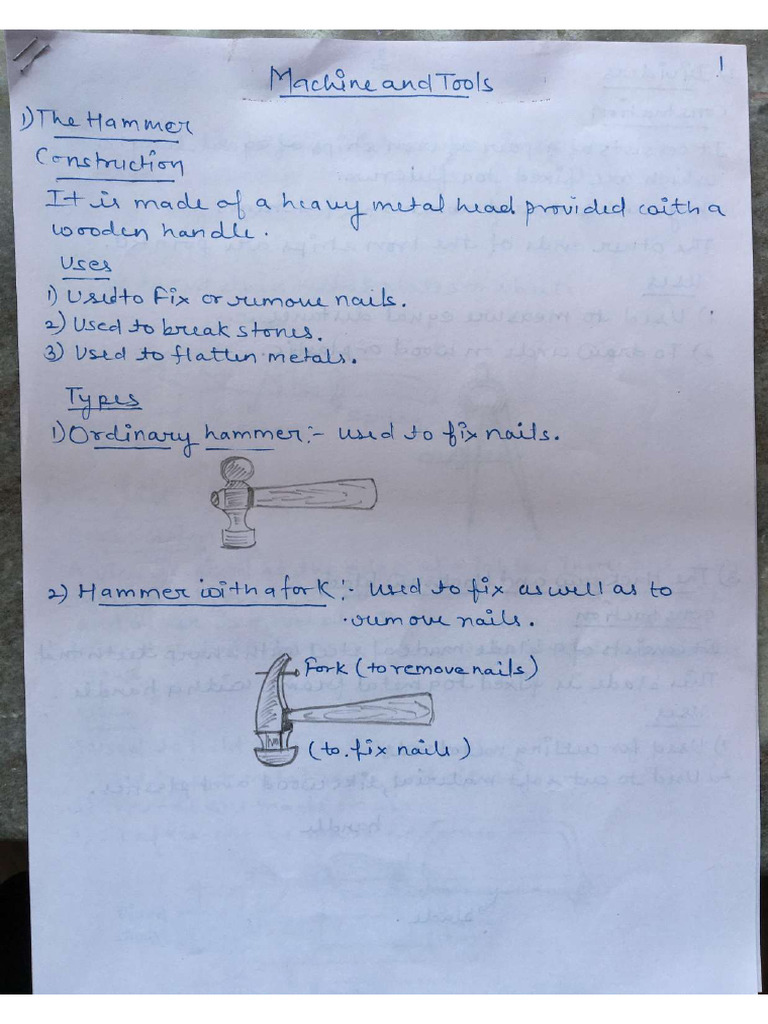 1
Machine and Tools
1) The Hammer
Construction
It is made of a heavy metal head provided with a
wooden handle.
Uses
1) Used to fix or remove nails.
2) Used to break stones.
3) Used to flatten metals.
Types
1) Ordinary hammer:- used to fix nails.
2) Hammer with a fork:- used to fix as well as to
remove nails.
Fork (to remove nails)
(to fix nails)